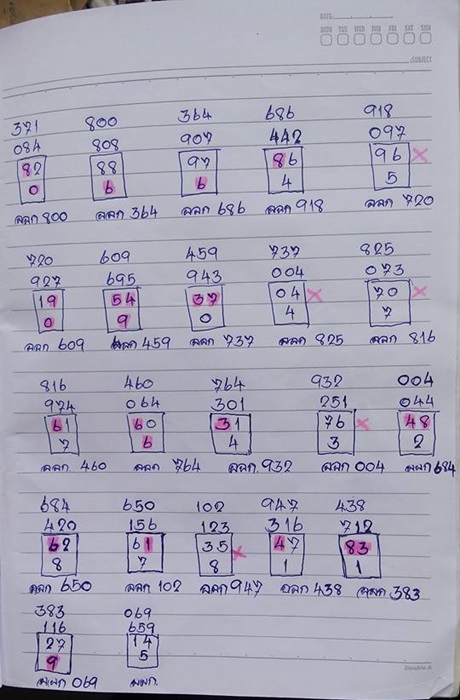 DATE
MON TUE WED THU FRI SAT SUN
SUBJECT
371 800 364 686 918
084 808 907 442 097
82 88 97 86 96 ×
0 6 6 4 5
ออก 800 ออก 364 ออก 686 ออก 918 ออก 720
720 609 459 737 825
927 695 943 004 073
19 54 37 04 × 70 ×
0 9 0 4 7
ออก 609 ออก 459 ออก 737 ออก 825 ออก 816
816 460 764 932 004
974 064 301 251 044
61 60 31 76 × 48
7 6 4 3 2
ออก. 460 ออก 764 ออก. 932 ออก 004 684
684 650 102 947 438
420 156 123 316 712
62 61 35 × 47 83
8 7 8 1 1
ออก 650 ออก 102 ออก 947 ออก 438 ออก 383
383 069
116 659
27 14
9 5
069